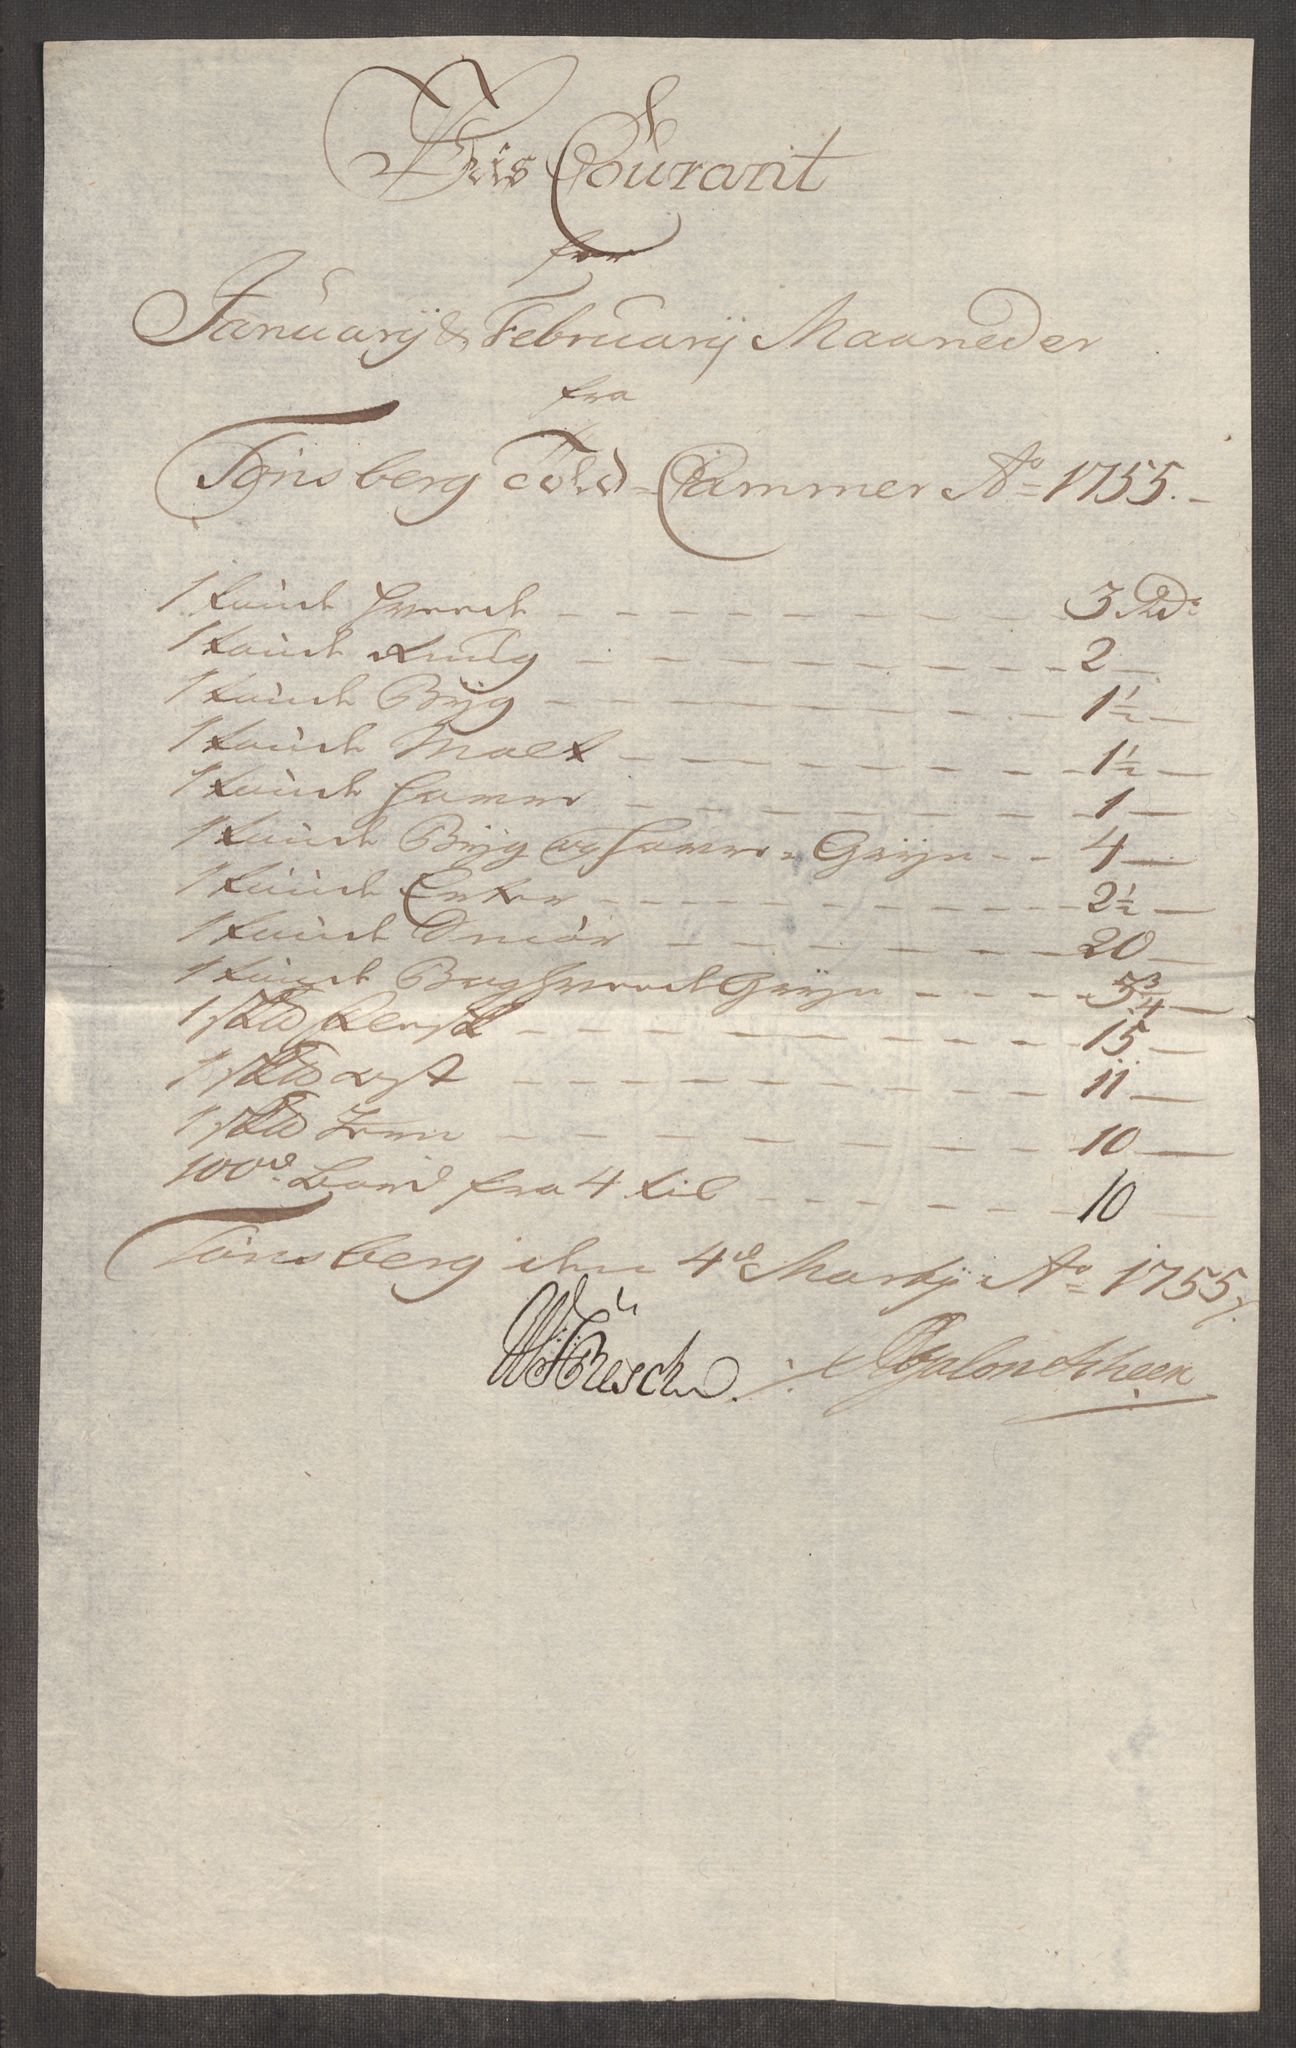 Pris Courant
for
Januarij & Februarij Maaneder
fra
Tønsberg Told-Cammer Ao 1755.
1 Tønde Hvede 3 Rdr
1 Tønde Rug 2
1 Tønde Byg 1½
1 Tønde Malt 1½
1 Tønde Havre 1
1 Tønde Byg og Havre-Gryn 4
1 Tønde Erter 2½
1 Tønde Smør 20
1 Tønde Boghvede Gryn 5¾
1 Skd Flesk 15
1 Skd Ost 11
1 Skd Jern 10
100de Bord fra 4 til 10
Tønsberg den 4de Martij Ao 1755